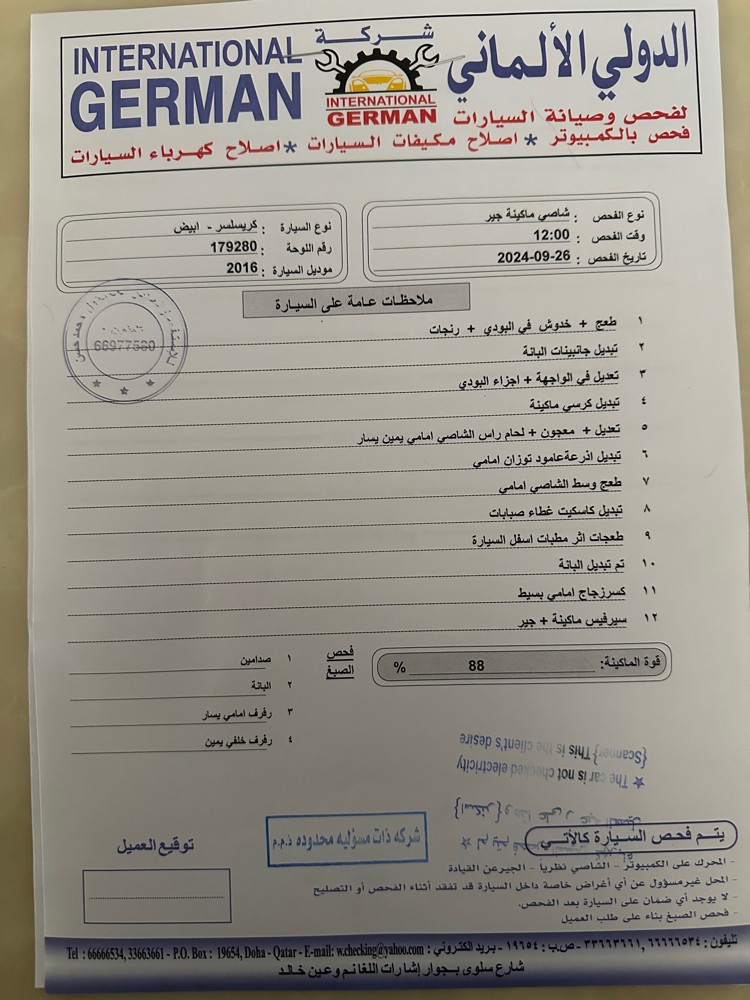 INTERNATIONAL GERMAN
شركة
INTERNATIONAL
GERMAN
الدولي الألماني
لفحص وصيانة السيارات
فحص بالكمبيوتر * اصلاح مكيفات السيارات * اصلاح كهرباء السيارات
نوع الفحص : شاصي ماكينة جير
وقت الفحص : 12:00
تاريخ الفحص : 2024-09-26
نوع السيارة : كريسلسر - ابيض
رقم اللوحة : 179280
موديل السيارة : 2016
ملاحظات عامة على السيارة
66977580
١ طعج + خدوش في البودي + رنجات
٢ تبديل جانبينات البانة
٣ تعديل في الواجهة + اجزاء البودي
٤ تبديل كرسي ماكينة
٥ تعديل + معجون + لحام راس الشاصي امامي يمين يسار
٦ تبديل اذرعةعامود توزان امامي
٧ طعج وسط الشاصي امامي
٨ تبديل كاسكيت غطاء صبابات
٩ طعجات اثر مطبات اسفل السيارة
١٠ تم تبديل البانة
١١ كسرزجاج امامي بسيط
١٢ سيرفيس ماكينة + جير
قوة الماكينة: 88 %
فحص الصبغ
١ صدامين
٢ البانة
٣ رفرف امامي يسار
٤ رفرف خلفي يمين
★ The car is not checked electricity
{Scanner} This is the client's desire
يتم فحص السيارة كالآتي
- المحرك على الكمبيوتر - الشاصي نظرياً - الجيرعن القيادة
- المحل غيرمسؤول عن أي أغراض خاصة داخل السيارة قد تفقد أثناء الفحص أو التصليح
- لا يوجد أي ضمان على السيارة بعد الفحص.
- فحص الصبغ بناء على طلب العميل
شركه ذات مسؤليه محدوده ذ.م.م
توقيع العميل
تليفون : ٦٦٦٦٦٥٣٤ ,٣٣٦٦٣٦٦١ - ص.ب: ١٩٦٥٤ - بريد الكتروني : Tel : 66666534, 33663661 - P.O. Box : 19654, Doha - Qatar - E-mail: w.checking@yahoo.com
شارع سلوى بجوار إشارات اللغانم وعين خالد